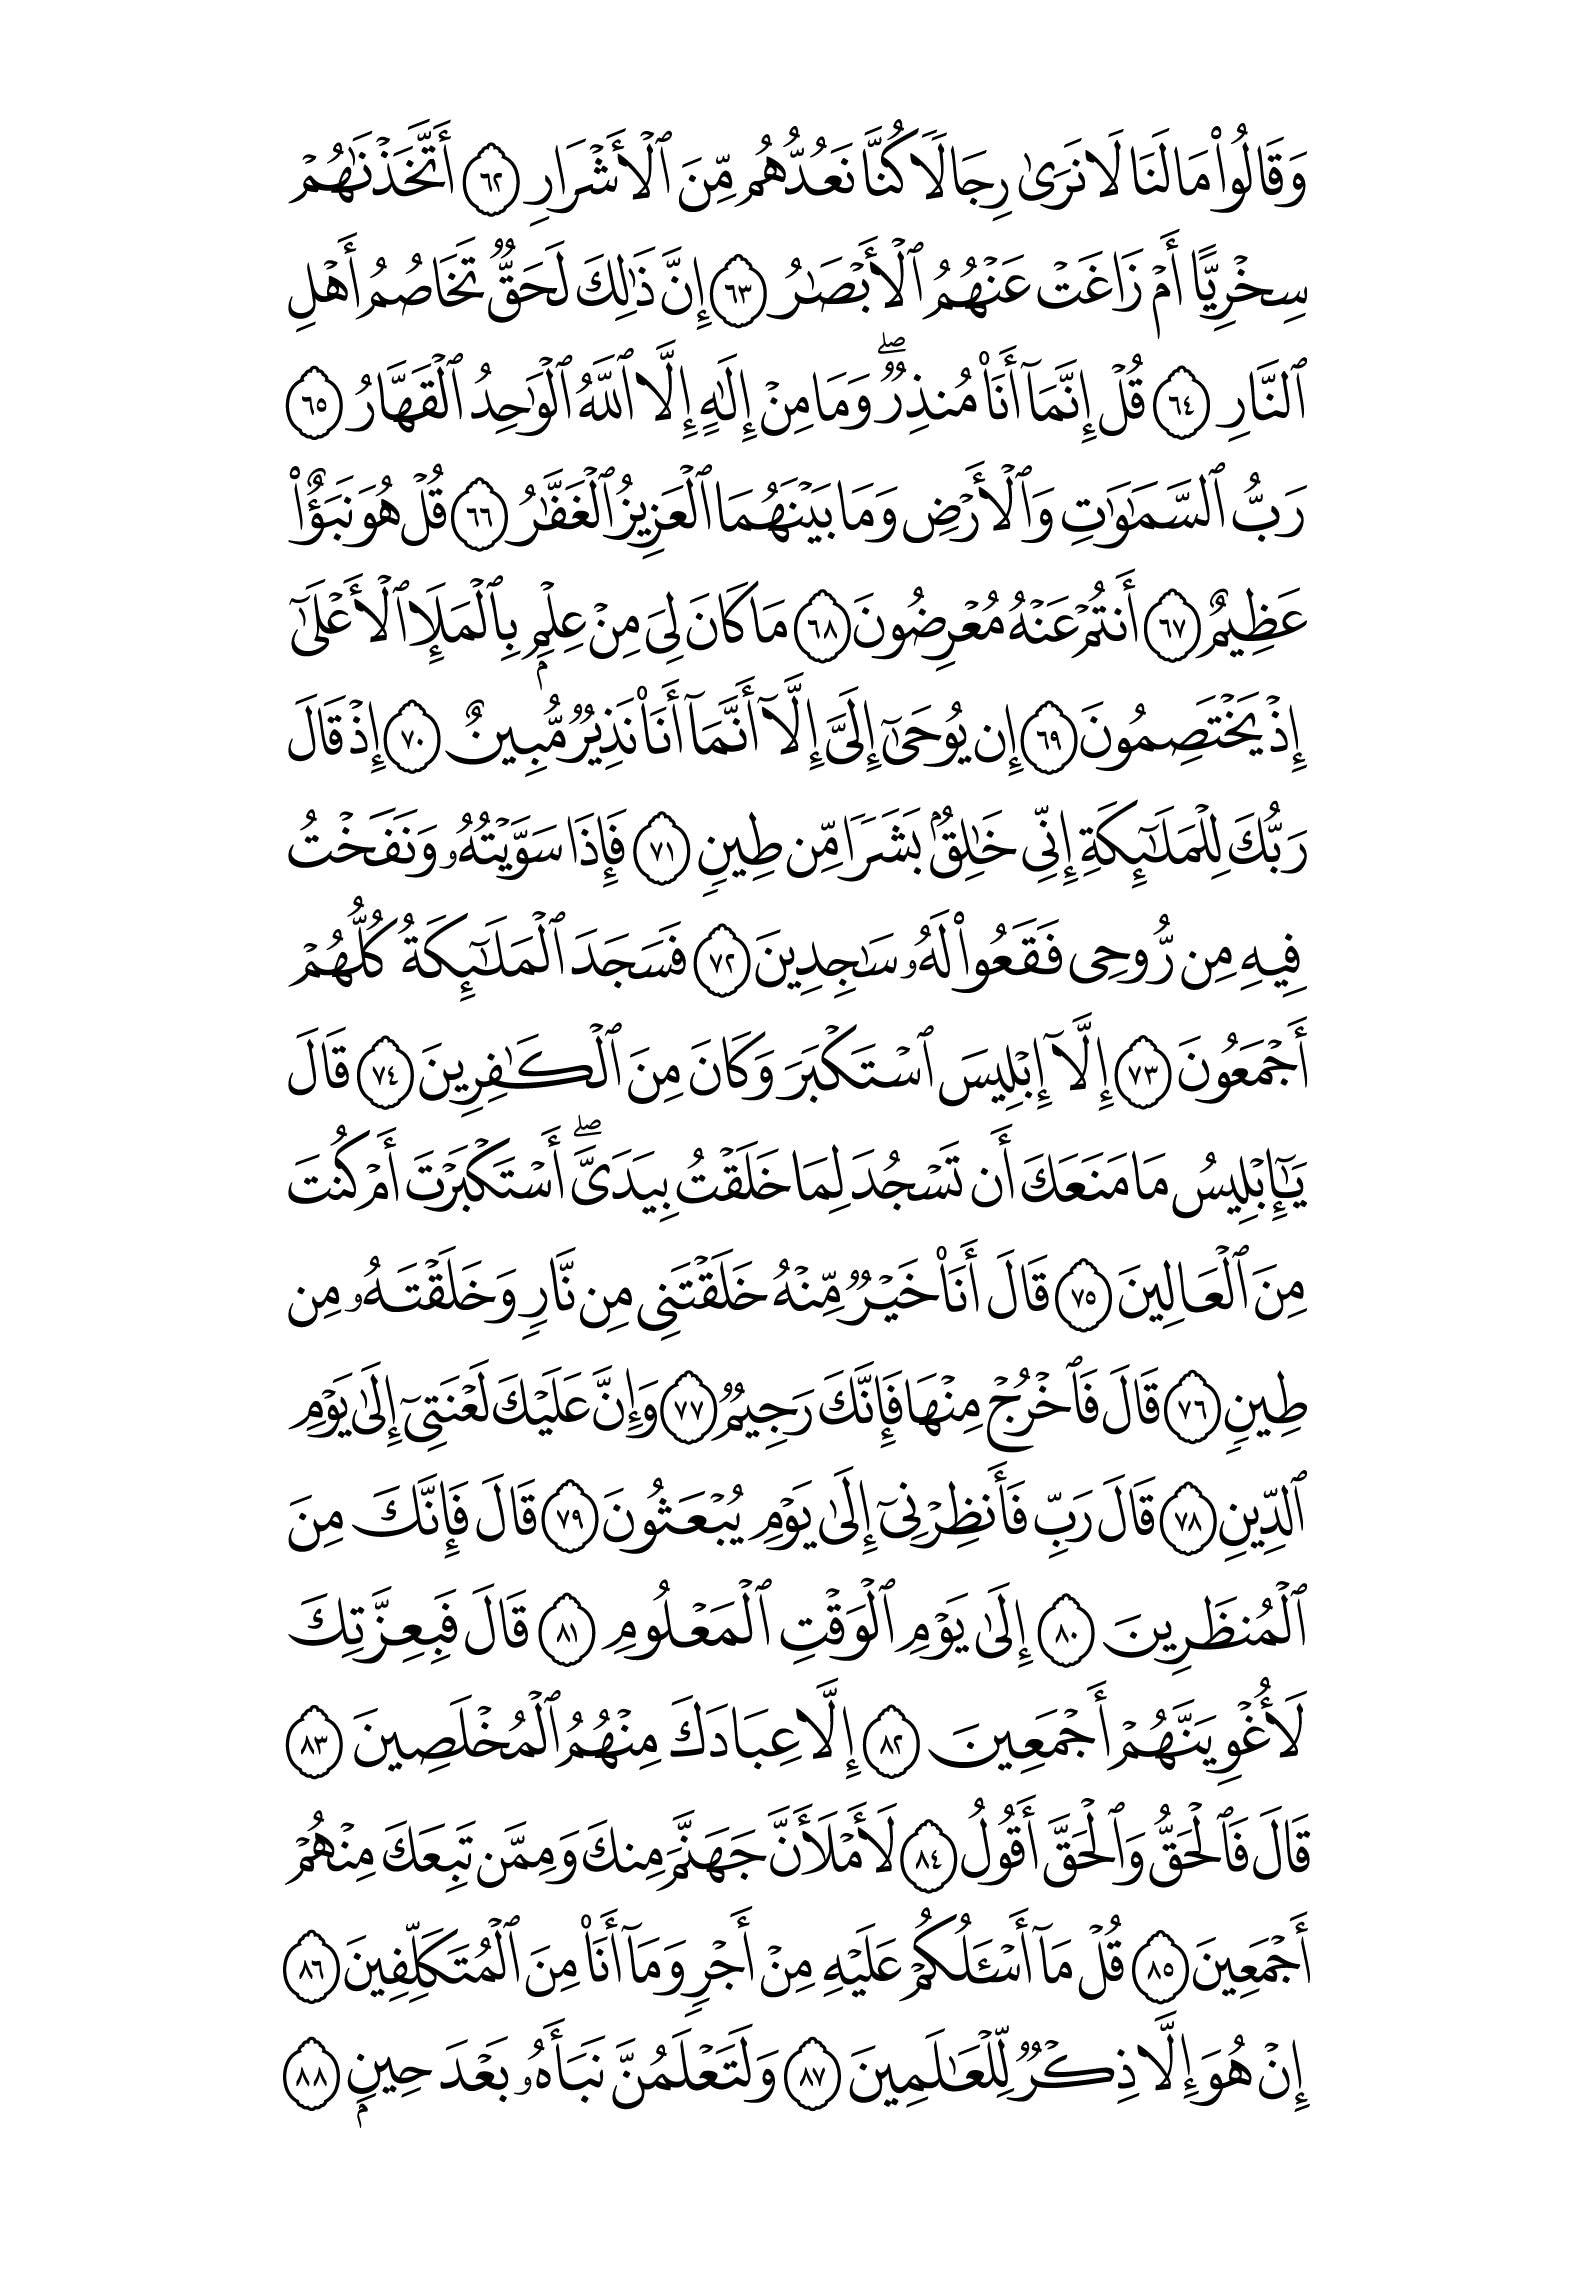 وَقَالُوا۟ مَا لَنَا لَا نَرَىٰ رِجَالًا كُنَّا نَعُدُّهُم مِّنَ ٱلْأَشْرَارِ ٦٢ أَتَّخَذْنَـٰهُمْ
سِخْرِيًّا أَمْ زَاغَتْ عَنْهُمُ ٱلْأَبْصَـٰرُ ٦٣ إِنَّ ذَٰلِكَ لَحَقٌّ تَخَاصُمُ أَهْلِ
ٱلنَّارِ ٦٤ قُلْ إِنَّمَآ أَنَا۠ مُنذِرٌ ۖ وَمَا مِنْ إِلَـٰهٍ إِلَّا ٱللَّهُ ٱلْوَٰحِدُ ٱلْقَهَّارُ ٦٥
رَبُّ ٱلسَّمَـٰوَٰتِ وَٱلْأَرْضِ وَمَا بَيْنَهُمَا ٱلْعَزِيزُ ٱلْغَفَّـٰرُ ٦٦ قُلْ هُوَ نَبَؤٌا۟
عَظِيمٌ ٦٧ أَنتُمْ عَنْهُ مُعْرِضُونَ ٦٨ مَا كَانَ لِىَ مِنْ عِلْمٍۭ بِٱلْمَلَإِ ٱلْأَعْلَىٰٓ
إِذْ يَخْتَصِمُونَ ٦٩ إِن يُوحَىٰٓ إِلَىَّ إِلَّآ أَنَّمَآ أَنَا۠ نَذِيرٌ مُّبِينٌ ٧٠ إِذْ قَالَ
رَبُّكَ لِلْمَلَـٰٓئِكَةِ إِنِّى خَـٰلِقٌۢ بَشَرًا مِّن طِينٍ ٧١ فَإِذَا سَوَّيْتُهُۥ وَنَفَخْتُ
فِيهِ مِن رُّوحِى فَقَعُوا۟ لَهُۥ سَـٰجِدِينَ ٧٢ فَسَجَدَ ٱلْمَلَـٰٓئِكَةُ كُلُّهُمْ
أَجْمَعُونَ ٧٣ إِلَّآ إِبْلِيسَ ٱسْتَكْبَرَ وَكَانَ مِنَ ٱلْكَـٰفِرِينَ ٧٤ قَالَ
يَـٰٓإِبْلِيسُ مَا مَنَعَكَ أَن تَسْجُدَ لِمَا خَلَقْتُ بِيَدَىَّ ۖ أَسْتَكْبَرْتَ أَمْ كُنتَ
مِنَ ٱلْعَالِينَ ٧٥ قَالَ أَنَا۠ خَيْرٌ مِّنْهُ خَلَقْتَنِى مِن نَّارٍ وَخَلَقْتَهُۥ مِن
طِينٍ ٧٦ قَالَ فَٱخْرُجْ مِنْهَا فَإِنَّكَ رَجِيمٌ ٧٧ وَإِنَّ عَلَيْكَ لَعْنَتِىٓ إِلَىٰ يَوْمِ
ٱلدِّينِ ٧٨ قَالَ رَبِّ فَأَنظِرْنِىٓ إِلَىٰ يَوْمِ يُبْعَثُونَ ٧٩ قَالَ فَإِنَّكَ مِنَ
ٱلْمُنظَرِينَ ٨٠ إِلَىٰ يَوْمِ ٱلْوَقْتِ ٱلْمَعْلُومِ ٨١ قَالَ فَبِعِزَّتِكَ
لَأُغْوِيَنَّهُمْ أَجْمَعِينَ ٨٢ إِلَّا عِبَادَكَ مِنْهُمُ ٱلْمُخْلَصِينَ ٨٣
قَالَ فَٱلْحَقُّ وَٱلْحَقَّ أَقُولُ ٨٤ لَأَمْلَأَنَّ جَهَنَّمَ مِنكَ وَمِمَّن تَبِعَكَ مِنْهُمْ
أَجْمَعِينَ ٨٥ قُلْ مَآ أَسْـَٔلُكُمْ عَلَيْهِ مِنْ أَجْرٍ وَمَآ أَنَا۠ مِنَ ٱلْمُتَكَلِّفِينَ ٨٦
إِنْ هُوَ إِلَّا ذِكْرٌ لِّلْعَـٰلَمِينَ ٨٧ وَلَتَعْلَمُنَّ نَبَأَهُۥ بَعْدَ حِينٍۭ ٨٨